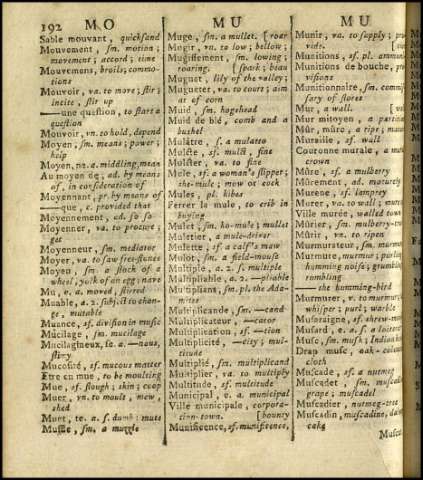 192 MO MU MU
Sable mouvant, quicksand
Mouvement, sm. motion;
movement; accord; time
Mouvemens, broils; commo-
tions
Mouvoir, va. to move; stir;
incite, stir up
—une question, to start a
question
Mouvoir, vn. to hold, depend
Moyen, sm. means; power;
help
Moyen, ne. a. middling, mean
Au moyen de; ad. by means
of, in consideration of
Moyennant, pr. by means of
—que, c. provided that
Moyennement, ad. so so
Moyenner, va. to procure;
get
Moyenneur, sm. mediator
Moyer, va. to saw free-stones
Moyeu, sm. a stock of a
wheel; yolk of an egg; nave
Mu, e, a. moved, stirred
Muable, a. 2. subject to chan-
ge, mutable
Muance, sf. division in music
Mucilage, sm. mucilage
Mucilagineux, se. a. —nous,
slimy
Mucosité, sf. mucous matter
Etre en mue, to be moulting
Mue, sf. slough; skin; coop
Muer, vn. to moult; mew,
shed
Muet, te. a. s. dumb; mute
Mufle, sm. a muzzle
Muge, sm. a mullet. [roar
Mugir, vn. to low; bellow;
Mugissement, sm. lowing;
roaring. [spark; beau
Muguet, lily of the valley;
Mugueter, va. to court; aim
at
Muid, sm. hogshead
Muid de blé, comb and a
bushel
Mulâtre, s. a mulatto
Mulcte, sf. mulct, fine
Mulcter, va. to fine
Mule, sf. a woman's slipper;
the-mule; mow or cock
Mules, pl. kibes
Ferrer la mule, to crib in
buying
Mulet, sm. ho-mule; mullet
Muletier, a mule-driver
Mulette, sf. a calf's maw
Mulot, sm. a field-mouse
Multiple, a. 2. s. multiple
Multipliable, a. 2. —pliable
Multiplians, sm. pl. the Ada-
mites
Multiplicande, sm. —cand
Multiplicateur, —cator
Multiplication, sf. —tion
Multiplicité, —city; mul-
titude
Multiplié, sm. multiplicand
Multiplier, va. to multiply
Multitude, sf. multitude
Municipal, e. a. municipal
Ville municipale, corpora-
tion-town. [bounty
Munificence, sf. munificence,
Munir, va. to supply; pro
vide.
Munitions, sf. pl. ammuni
Munitions de bouche, pro
visions
Munitionnaire, sm. commis
sary of stores
Mur, a wall.
Mur mitoyen, a partition
Mûr, mûre, a. ripe; mature
Muraille, sf. wall
Couronne murale, a mural
crown
Mûre, sf. a mulberry
Mûrement, ad. maturely
Murene, sf. lamprey
Murer, va. to wall; mure
Ville murée, walled town
Mûrier, sm. mulberry-tree
Mûrir, va. to ripen
Murmurateur, sm. murmurer
Murmure, murmur; purling
humming noise; grumbling
rumbling
— the humming-bird
Murmurer, vn. to murmur
whisper; purl; warble
Musaraigne, sf. shrew-mouse
Musard, e. a. s. a loiterer
Musc, sm. musk; Indian
Drap musc, oak-colour
cloth
Muscade, sf. a nutmeg
Muscadet, sm. muscadel
grape; muscadel
Muscadier, nutmeg-tree
Muscadin, muscadine,
cake
Musca